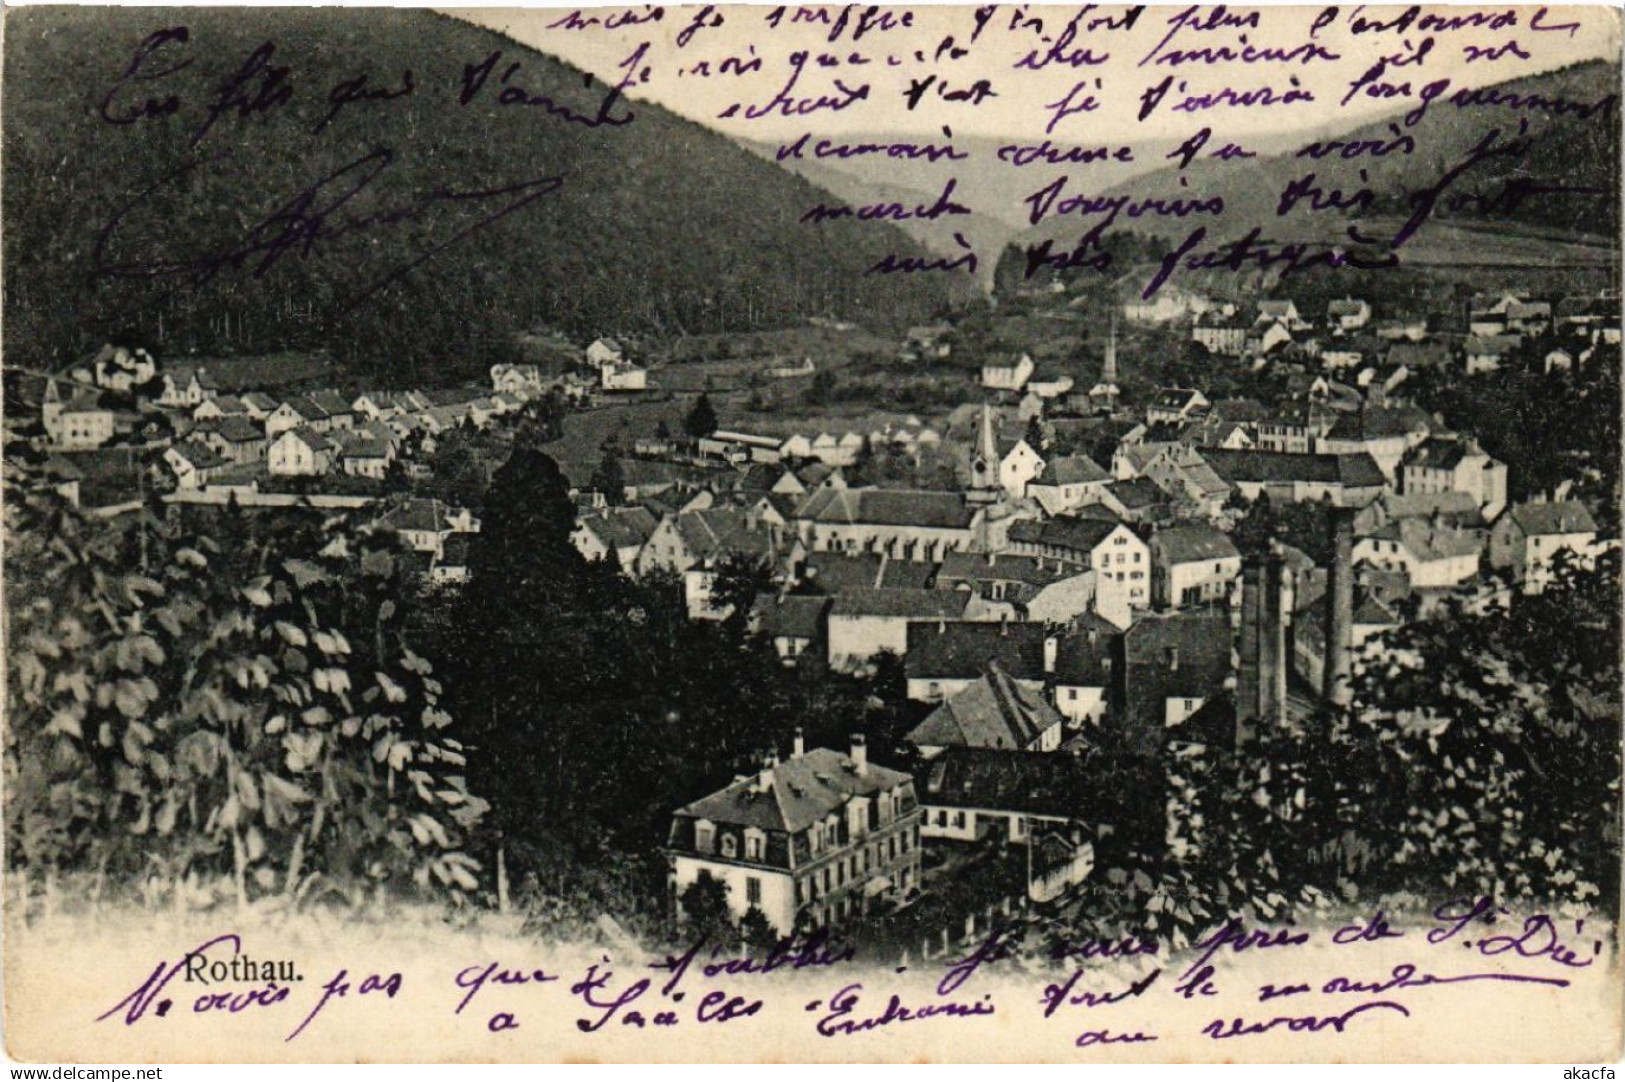 mais je souffre très fort plus l'estomac
je crois que cela ira mieux il me
serait t'et je t'écrirai longuement
demain comme tu vois je
marche toujours très fort
suis très fatigué
Ton fils qui t'aime
Rothau.
Ne crois pas que je t'oublie. Je suis près de St Dié
a Saales Entraine tout le monde
au revoir
delcampe.net
akacfa